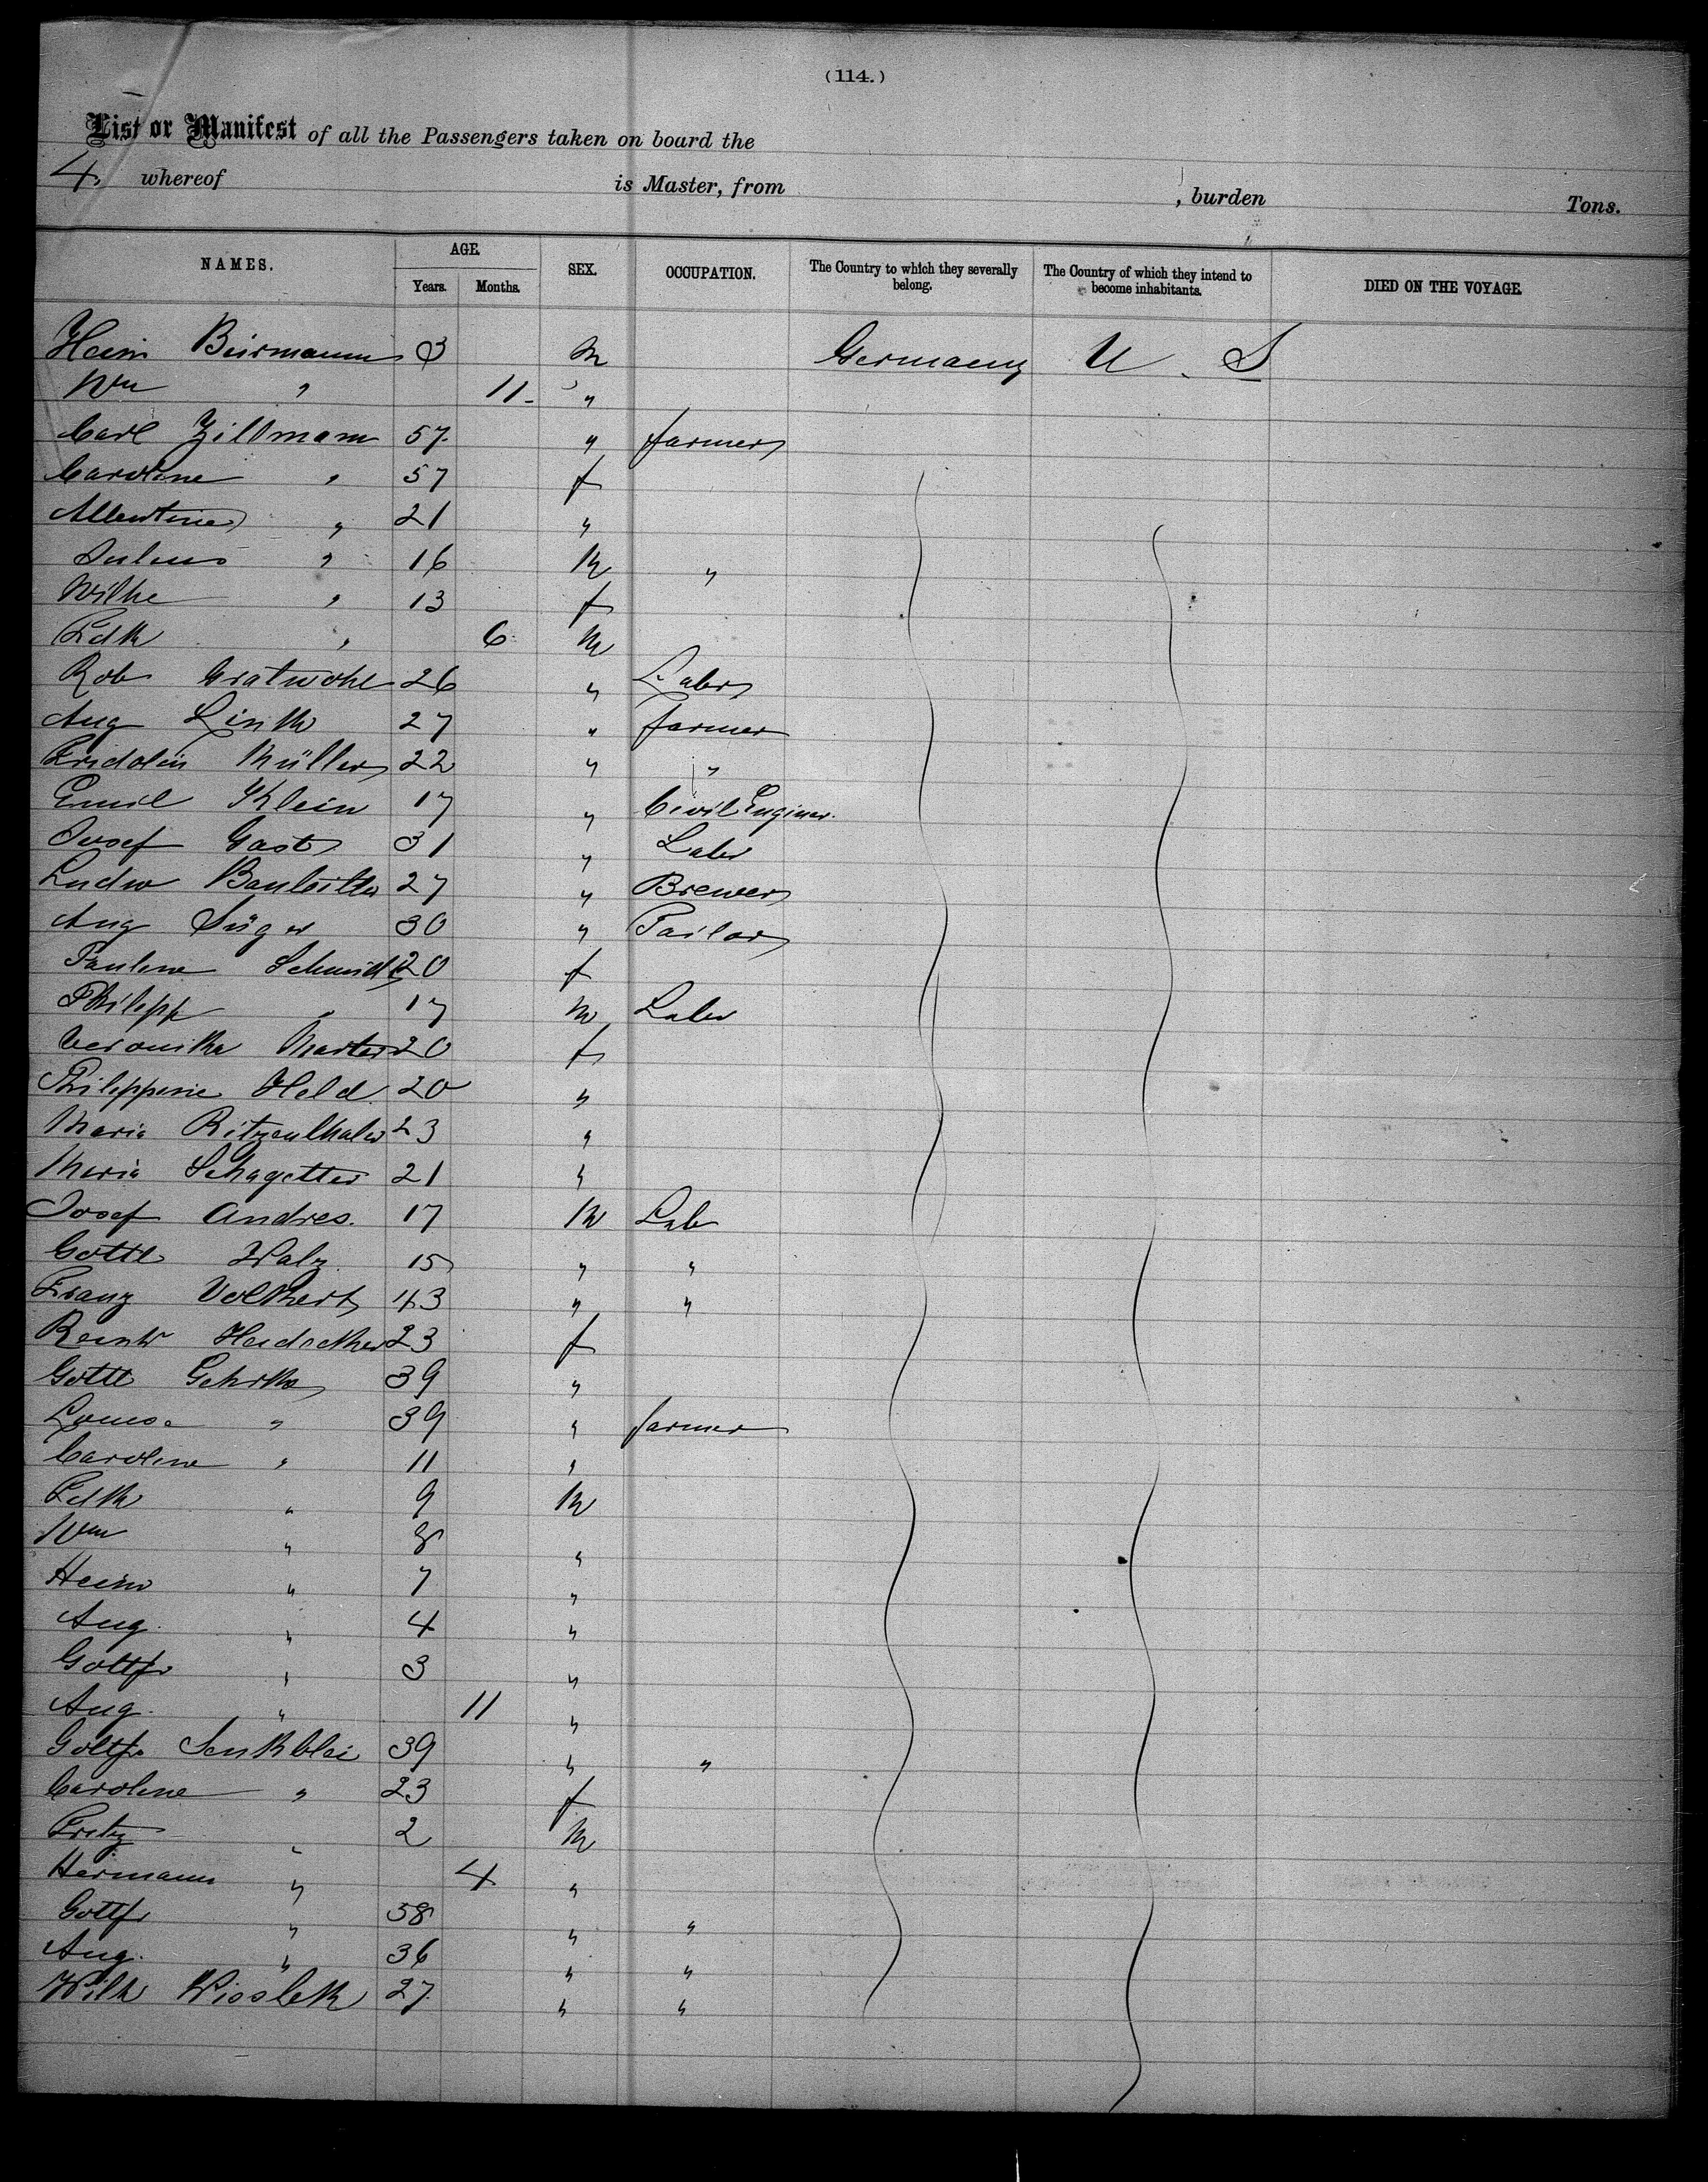 (114.)
List or Manifest of all the Passengers taken on board the
4. whereof is Master, from , burden Tons.
NAMES. AGE. Years. Months. SEX. OCCUPATION. The Country to which they severally belong. The Country of which they intend to become inhabitants. DIED ON THE VOYAGE.
Hein Biermann 3 M Germany U. S
Wm " 11 "
Carl Zillmann 57 " farmer
Caroline " 57 f
Albertine " 21 "
Julius " 16 M "
Wilhe " 13 f
" 6 M
Rob Gratwohl 26 " Labr
Aug Link 27 " farmer
Fridolin Müller 22 " "
Emil Klein 17 " Civil Engineer
Josef Gast 31 " Labr
Ludw 27 " Brewer
Aug 30 " Tailor
Pauline Schmidt 20 f
Philipp " 17 M Labr
Veronika Marter 20 f
Philippine Held 20 "
Maria Ritzenthaler 23 "
Maria Schagetter 21 "
Josef Andres. 17 M Lab
Gottl Walz 15 " "
Franz Volkert 43 " "
23 f
Gottl Gehrke 39 "
Louise " 39 " farmer
Caroline " 11 "
" 9 M
Wm " 8 "
Heinr " 7 "
Aug. " 4 "
Gottfr " 3 "
Aug. " 11 "
Gottfr Senkblei 39 " "
Caroline " 23 f
Fritz " 2 M
Hermann " 4 "
Gottfr " 58 " "
Aug. " 36 " "
Wilh 27 " "